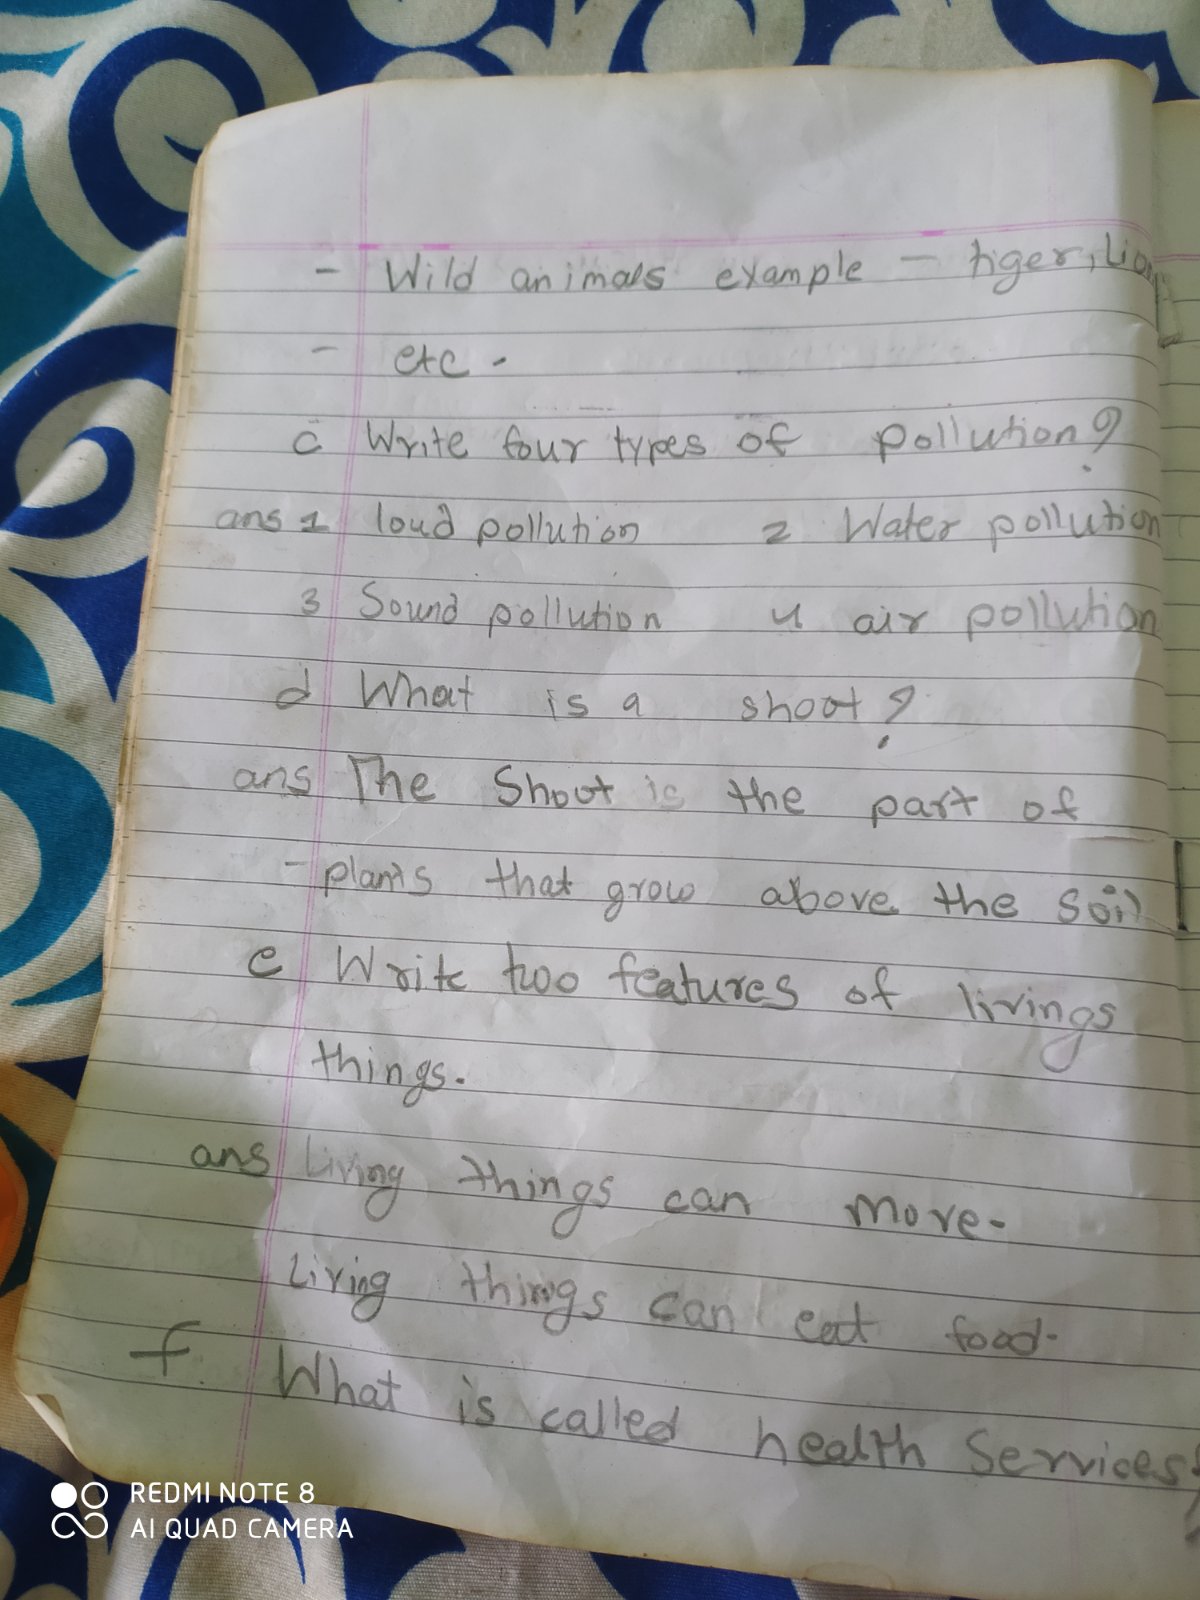 - Wild animals example - tiger, Lion
- etc.
c Write four types of pollution?
ans 1 loud pollution 2 Water pollution
3 Sound pollution 4 air pollution
d What is a shoot?
ans The Shoot is the part of
- plants that grow above the soil
e Write two features of livings
things.
ans Living things can move.
Living things can eat food.
f. What is called health Services?
REDMI NOTE 8
AI QUAD CAMERA